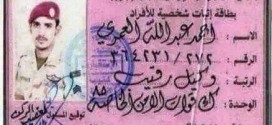 بطاقة إثبات شخصية للأفراد
الاسم احمد عبد الله العمري
الرقم ٣٦٤٢٣١/٢٧٢
الرتبة وكيل رقيب
الوحدة ك قوات الامن الخاصة
توقيع